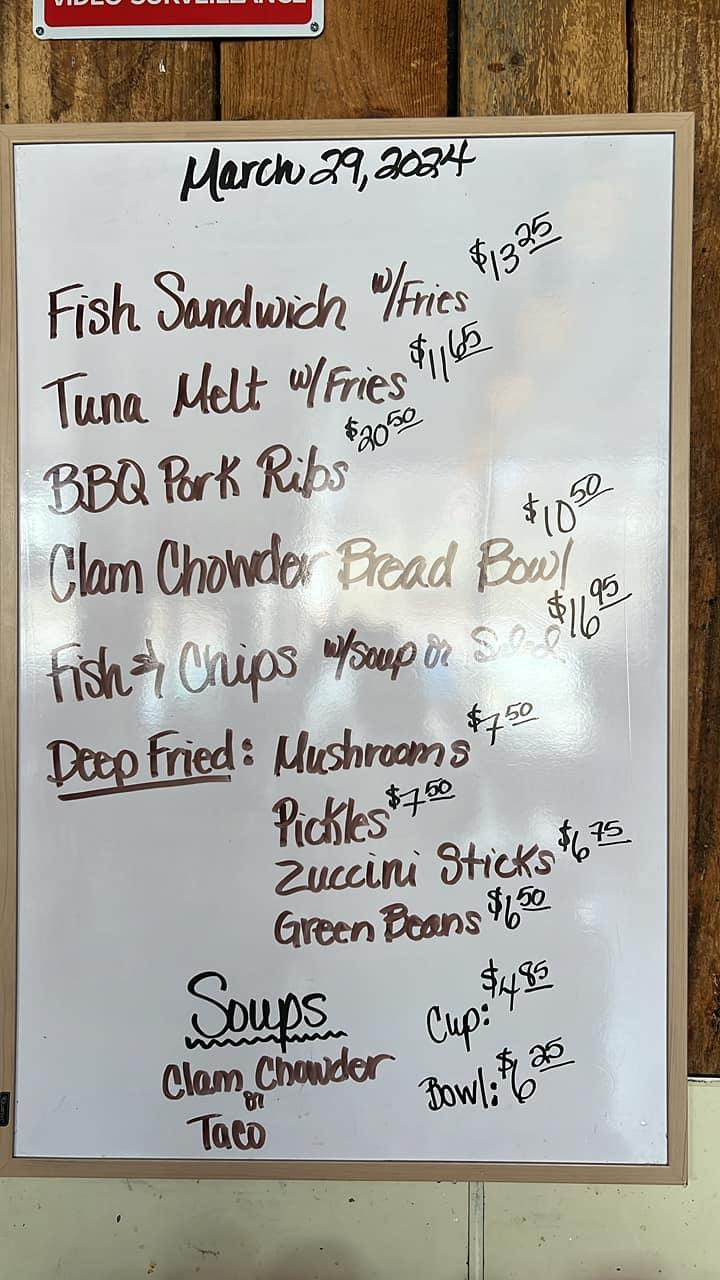 VIDEO SURVEILLANCE
March 29, 2024
Fish Sandwich w/Fries $13.25
Tuna Melt w/Fries $11.65
BBQ Pork Ribs $20.50
Clam Chowder Bread Bowl $10.50
Fish & Chips w/soup or Salad $16.95
Deep Fried: Mushrooms $7.50
Pickles $7.50
Zuccini Sticks $6.75
Green Beans $6.50
Soups
Cup: $4.85
Clam Chowder
Bowl: $6.25
or
Taco